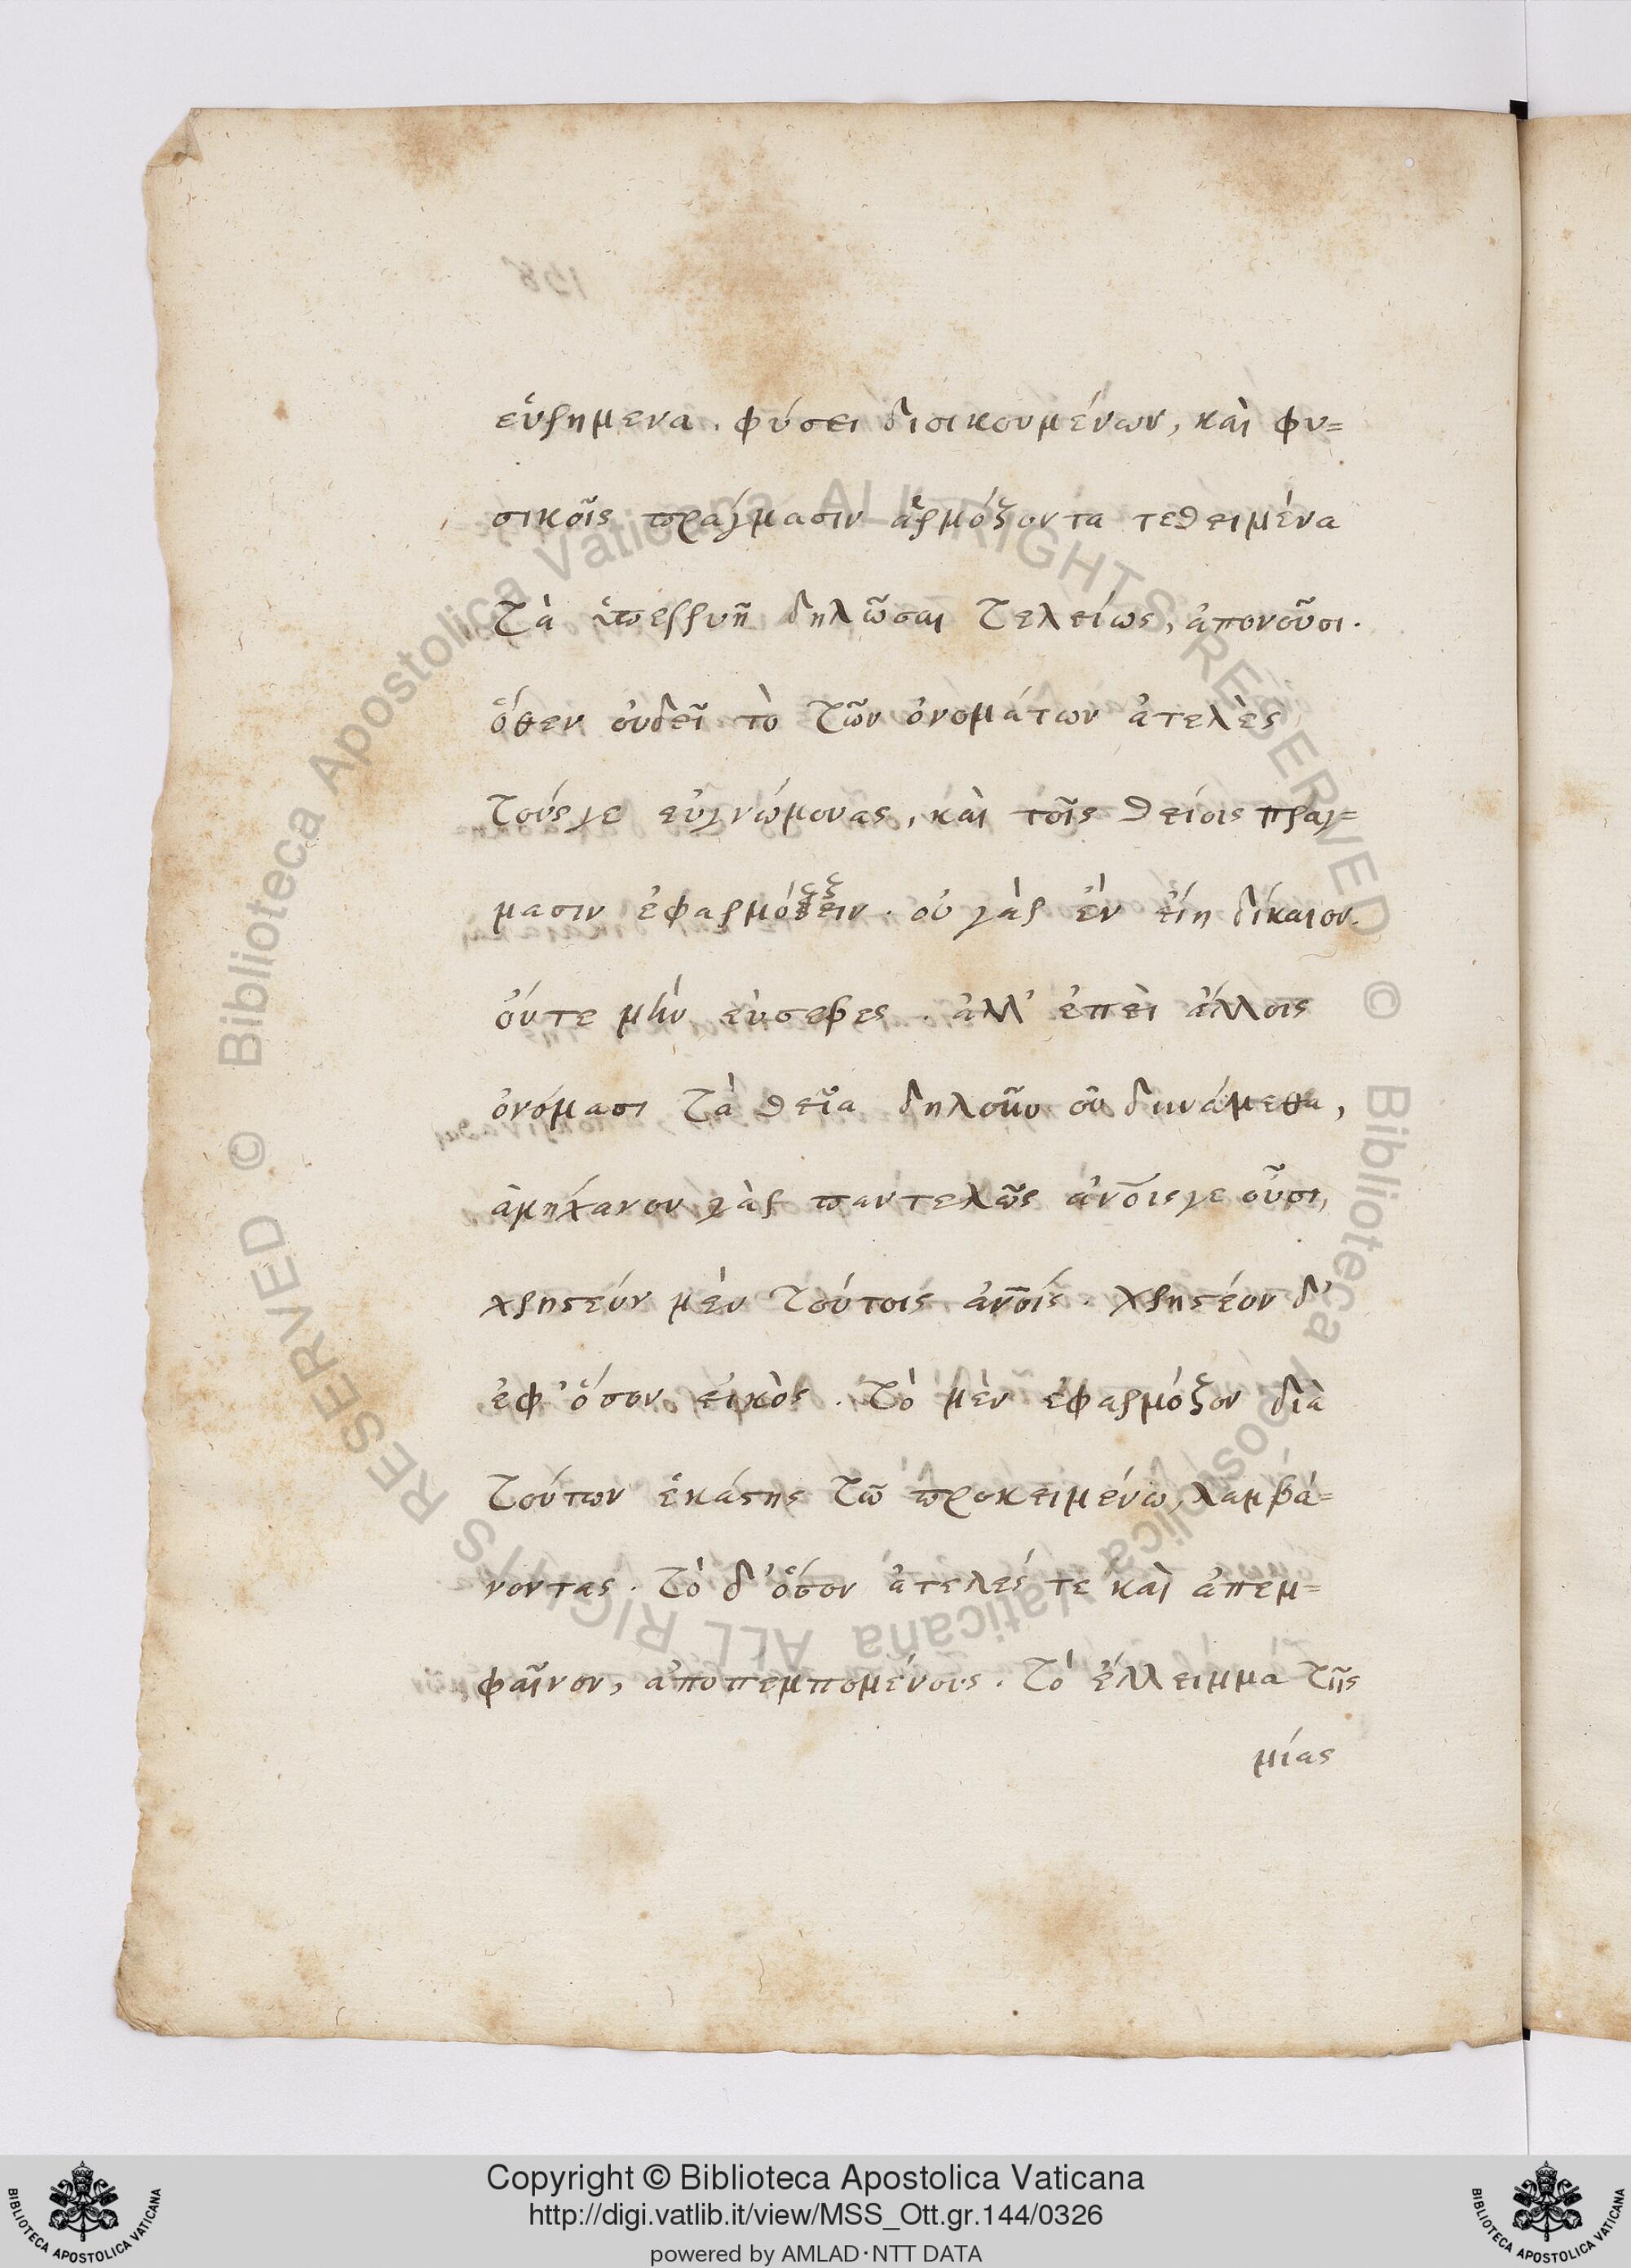 εὑρημενα. φύσει διοικουμένων, καὶ φυ=
σικοῖς πράγμασιν ἁρμόζοντα τεθειμένα
τὰ ὑπερφυῆ δηλῶσαι τελείως, ἀπονοῦσι.
ὅθεν οὐδεῖ τὸ τῶν ὀνομάτων ἀτελὲς
τούς γε εὐγνώμονας, καὶ τοῖς θείοις πραγ=
μασιν ἐφαρμόζειν. οὐ γὰρ ἐν εἴη δίκαιον.
οὔτε μὴν εὐσεβες. ἀλλ' ἐπεὶ ἄλλοις
ὀνόμασι τὰ θεῖα δηλοῦν οὐ δυνάμεθα,
ἀμήχανον γὰρ παντελῶς ἀνοις γε οὖσι,
χρηστεόν μὲν τούτοις ἀνοίς. χρηστέον δ'
ἐφ' ὅσον εἰκὸς. τὸ μὲν ἐφαρμόζον διὰ
τούτων ἑκάστης τῶ προκειμένω, λαμβά=
νοντας. τὸ δ' ὅσον ἀτελές τε καὶ ἀπεμ=
φαῖνον, ἀποπεμπομένους. τὸ ἔλλειμμα τῆς
μίας
Copyright © Biblioteca Apostolica Vaticana
http://digi.vatlib.it/view/MSS_Ott.gr.144/0326
powered by AMLAD·NTT DATA
BIBLIOTECA APOSTOLICA VATICANA
BIBLIOTECA APOSTOLICA VATICANA
© Biblioteca Apostolica Vaticana ALL RIGHTS RESERVED © Biblioteca Apostolica Vaticana ALL RIGHTS RESERVED